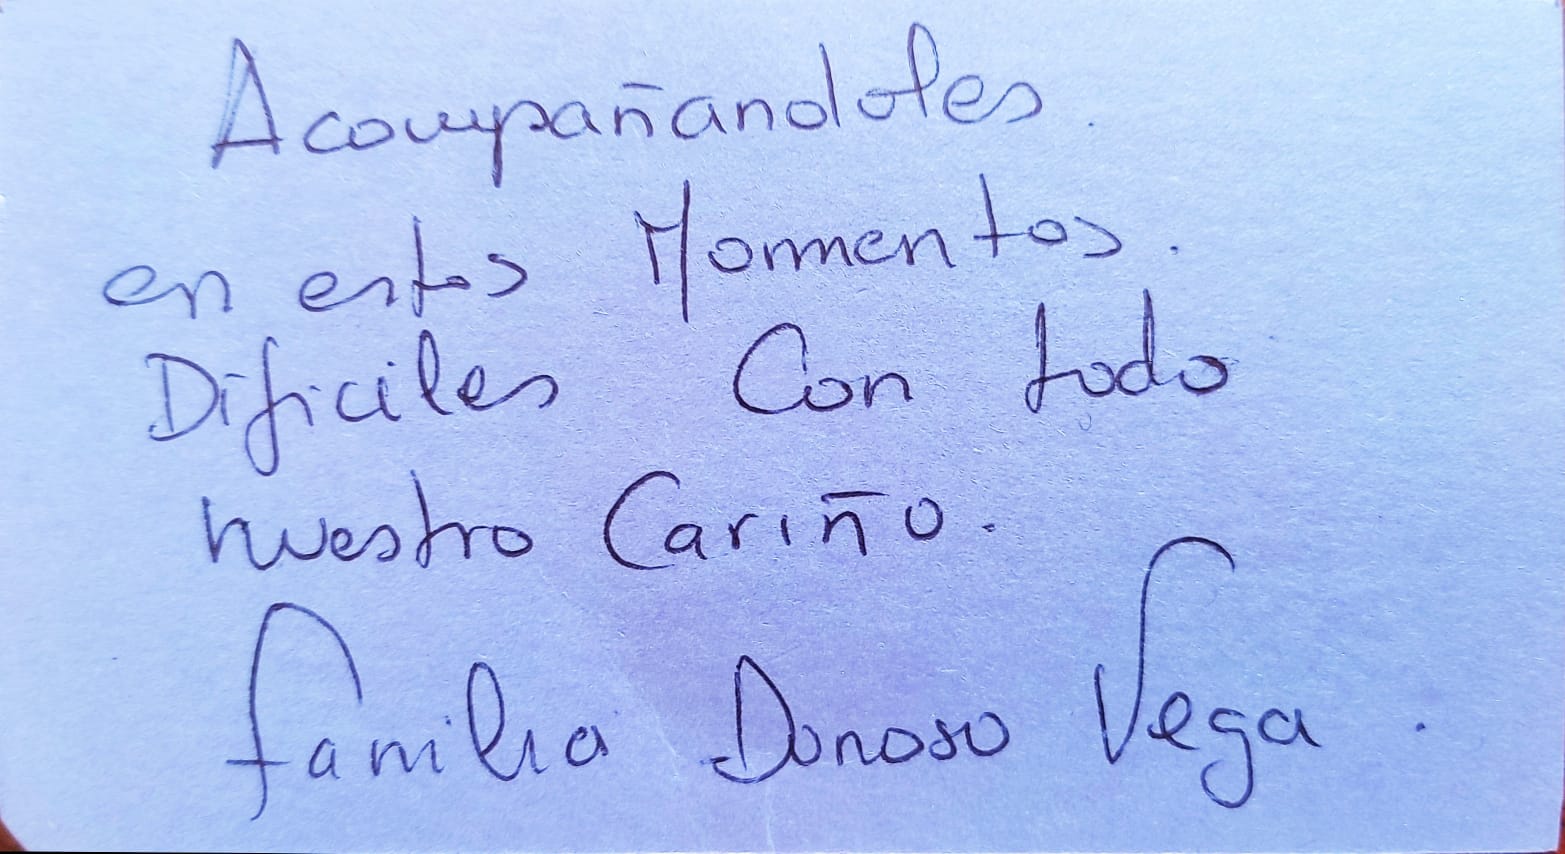 Acompañandoles.
en estos Momentos.
Dificiles Con todo
nuestro Cariño.
familia Donoso Vega.